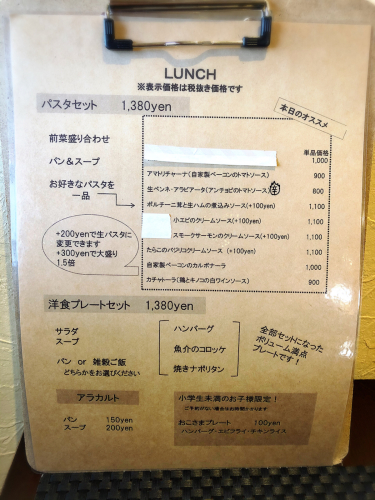 LUNCH
※表示価格は税抜き価格です
パスタセット 1,380yen
本日のオススメ
前菜盛り合わせ
パン＆スープ
お好きなパスタを
一品
+200yenで生パスタに
変更できます
+300yenで大盛り
1.5倍
単品価格
1,000
アマトリチャーナ(自家製ベーコンのトマトソース) 900
生ペンネ・アラビアータ(アンチョビのトマトソース) 800
ポルチーニ茸と生ハムの煮込みソース(+100yen) 1,100
小エビのクリームソース(+100yen) 1,100
スモークサーモンのクリームソース(+100yen) 1,100
たらこのバジリコクリームソース (+100yen) 1,100
自家製ベーコンのカルボナーラ 1,000
カチャトーラ(鶏とキノコの白ワインソース) 900
洋食プレートセット 1,380yen
サラダ
スープ
パン or 雑穀ご飯
どちらかをお選びください
ハンバーグ
魚介のコロッケ
焼きナポリタン
全部セットになった
ボリューム満点
プレートです！
アラカルト
パン 150yen
スープ 200yen
小学生未満のお子様限定！
ご予約がない場合はお時間かかります
おこさまプレート 100yen
ハンバーグ・エビフライ・チキンライス